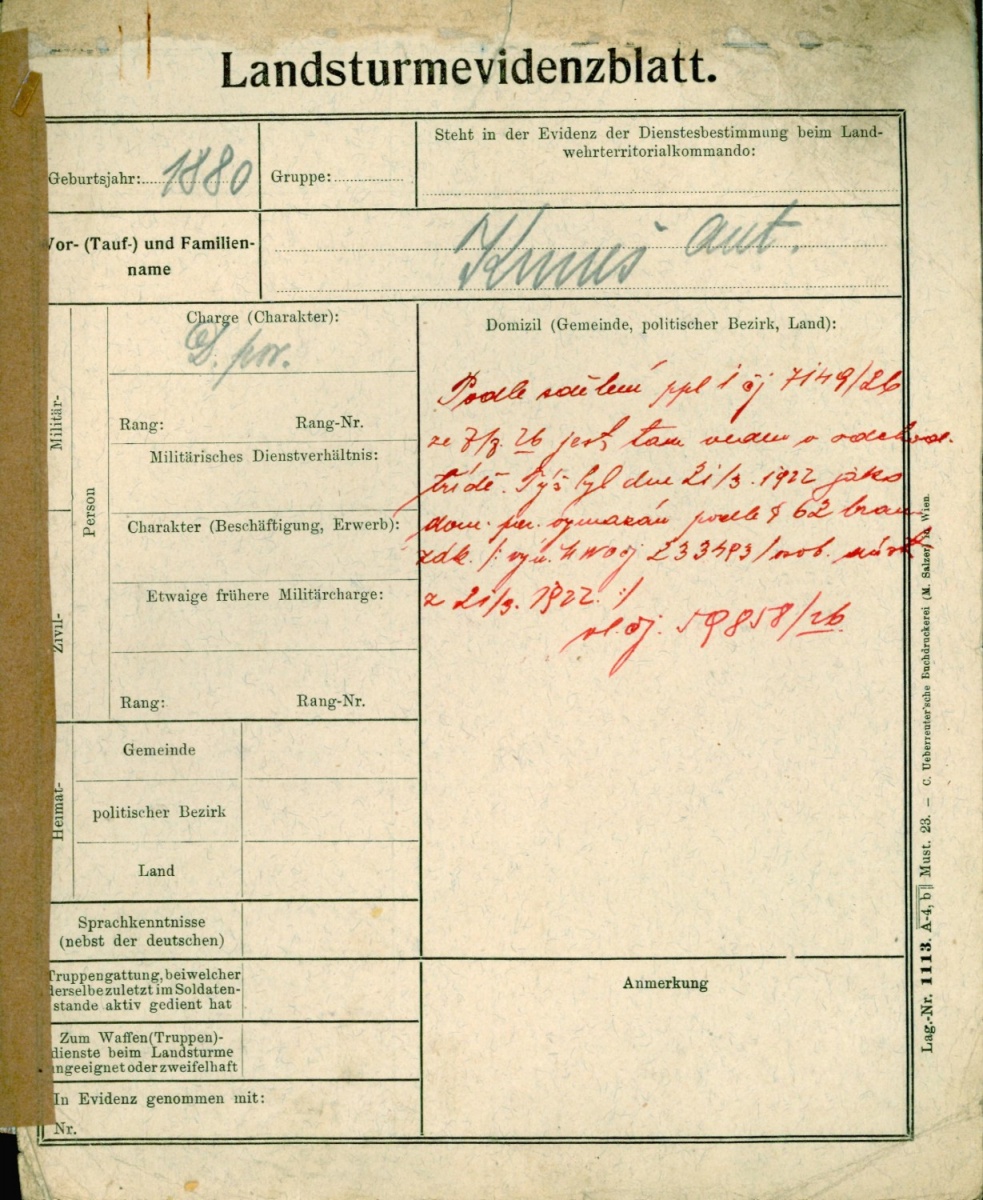 Landsturmevidenzblatt.
Geburtsjahr: 1880
Gruppe:
Steht in der Evidenz der Dienstesbestimmung beim Land-
wehrterritorialkommando:
Vor- (Tauf-) und Familien-
name
ant.
Militär-
Zivil-
Person
Charge (Charakter):
D. por.
Rang: Rang-Nr.
Militärisches Dienstverhältnis:
Charakter (Beschäftigung, Erwerb):
Etwaige frühere Militärcharge:
Rang: Rang-Nr.
Domizil (Gemeinde, politischer Bezirk, Land):
Podle sdělení ppl 1 čj 7149/26
ze 7/7. 26 jest tam veden v odchod.
třídě. Týž byl dne 21/3. 1922 jako
dom. per. vymazán podle § 62 bran.
zák. /: výn. 233493/osob.
z 21/3. 1922. :/
vl. čj. 59858/26
Heimat-
Gemeinde
politischer Bezirk
Land
Sprachkenntnisse
(nebst der deutschen)
Truppengattung, bei welcher
derselbe zuletzt im Soldaten-
stande aktiv gedient hat
Zum Waffen(Truppen)-
dienste beim Landsturme
ungeeignet oder zweifelhaft
In Evidenz genommen mit:
Nr.
Anmerkung
Lag.-Nr. 1113. A-4, b Must. 23. — C. Ueberreuter'sche Buchdruckerei (M. Salzer) in Wien.